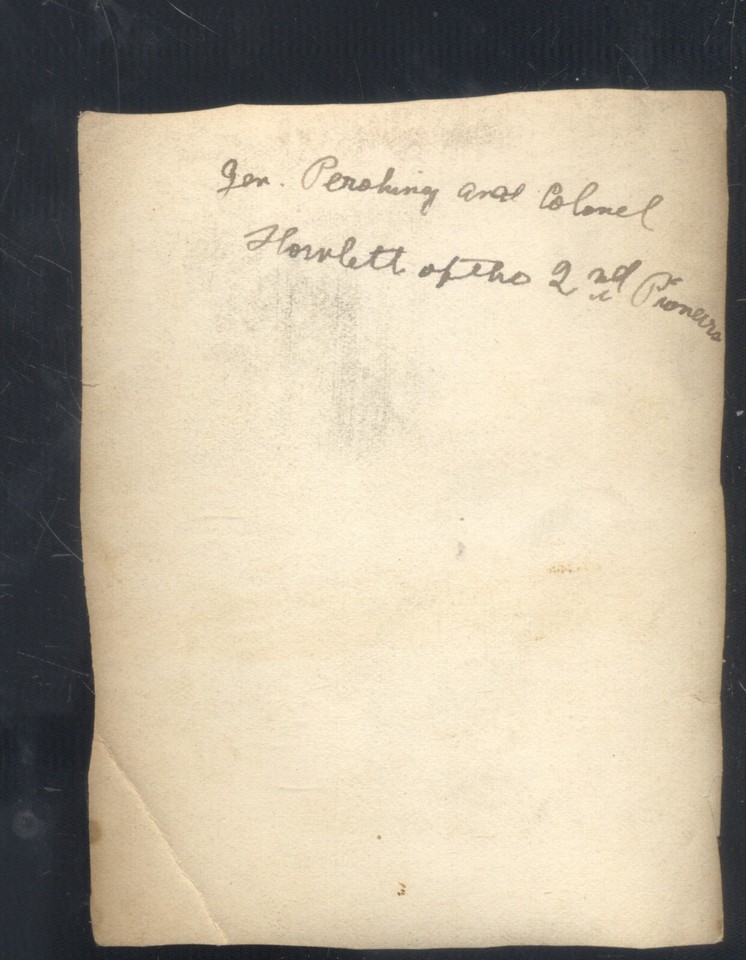 Gen. Pershing and Colonel
Howlett of the 2nd Pioneers